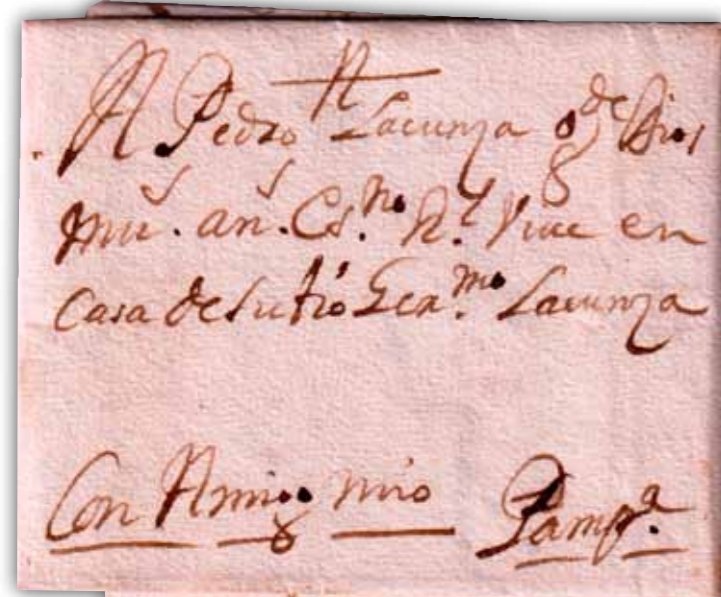 A Pedro Lacunza g.de Dios
ms. as. Es.no R.l Vive en
Casa de su tio Gera.mo Lacunza
Con Amigo mio Pamp.a